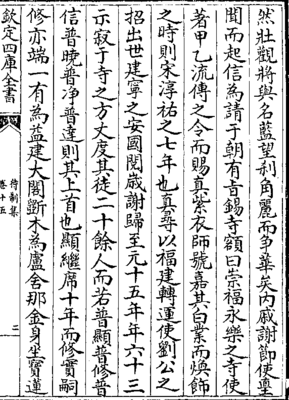 然壯觀將與名藍望刹角麗而爭華矣内戚謝節使堂
聞而起信為請于朝有旨錫寺額曰崇福永樂之寺使
著甲乙流傳之令而賜真紫衣師號嘉其白業而煥飾
之時則宋淳祐之七年也真尋以福建轉運使劉公之
招出世建寧之安國閱歲謝歸至元十五年年六十三
示寂于寺之方丈度其徒二十餘人而若普顯普修普
信普曉普淨普達則其上首也顯繼席十年而修實嗣
修亦端一有為益建大閣斵木為盧舍那金身坐寶蓮
欽定四庫全書
待制集
卷十五
二